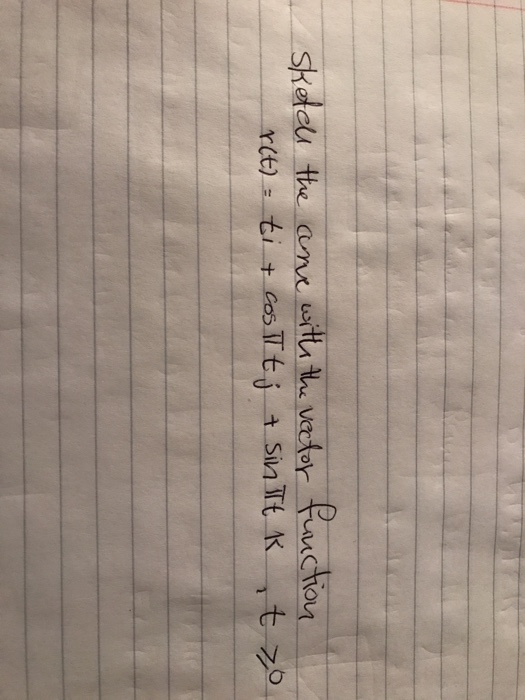 Sketch the curve with the vector function
r(t) = ti + cos πt j + sin πt k , t ≥ 0